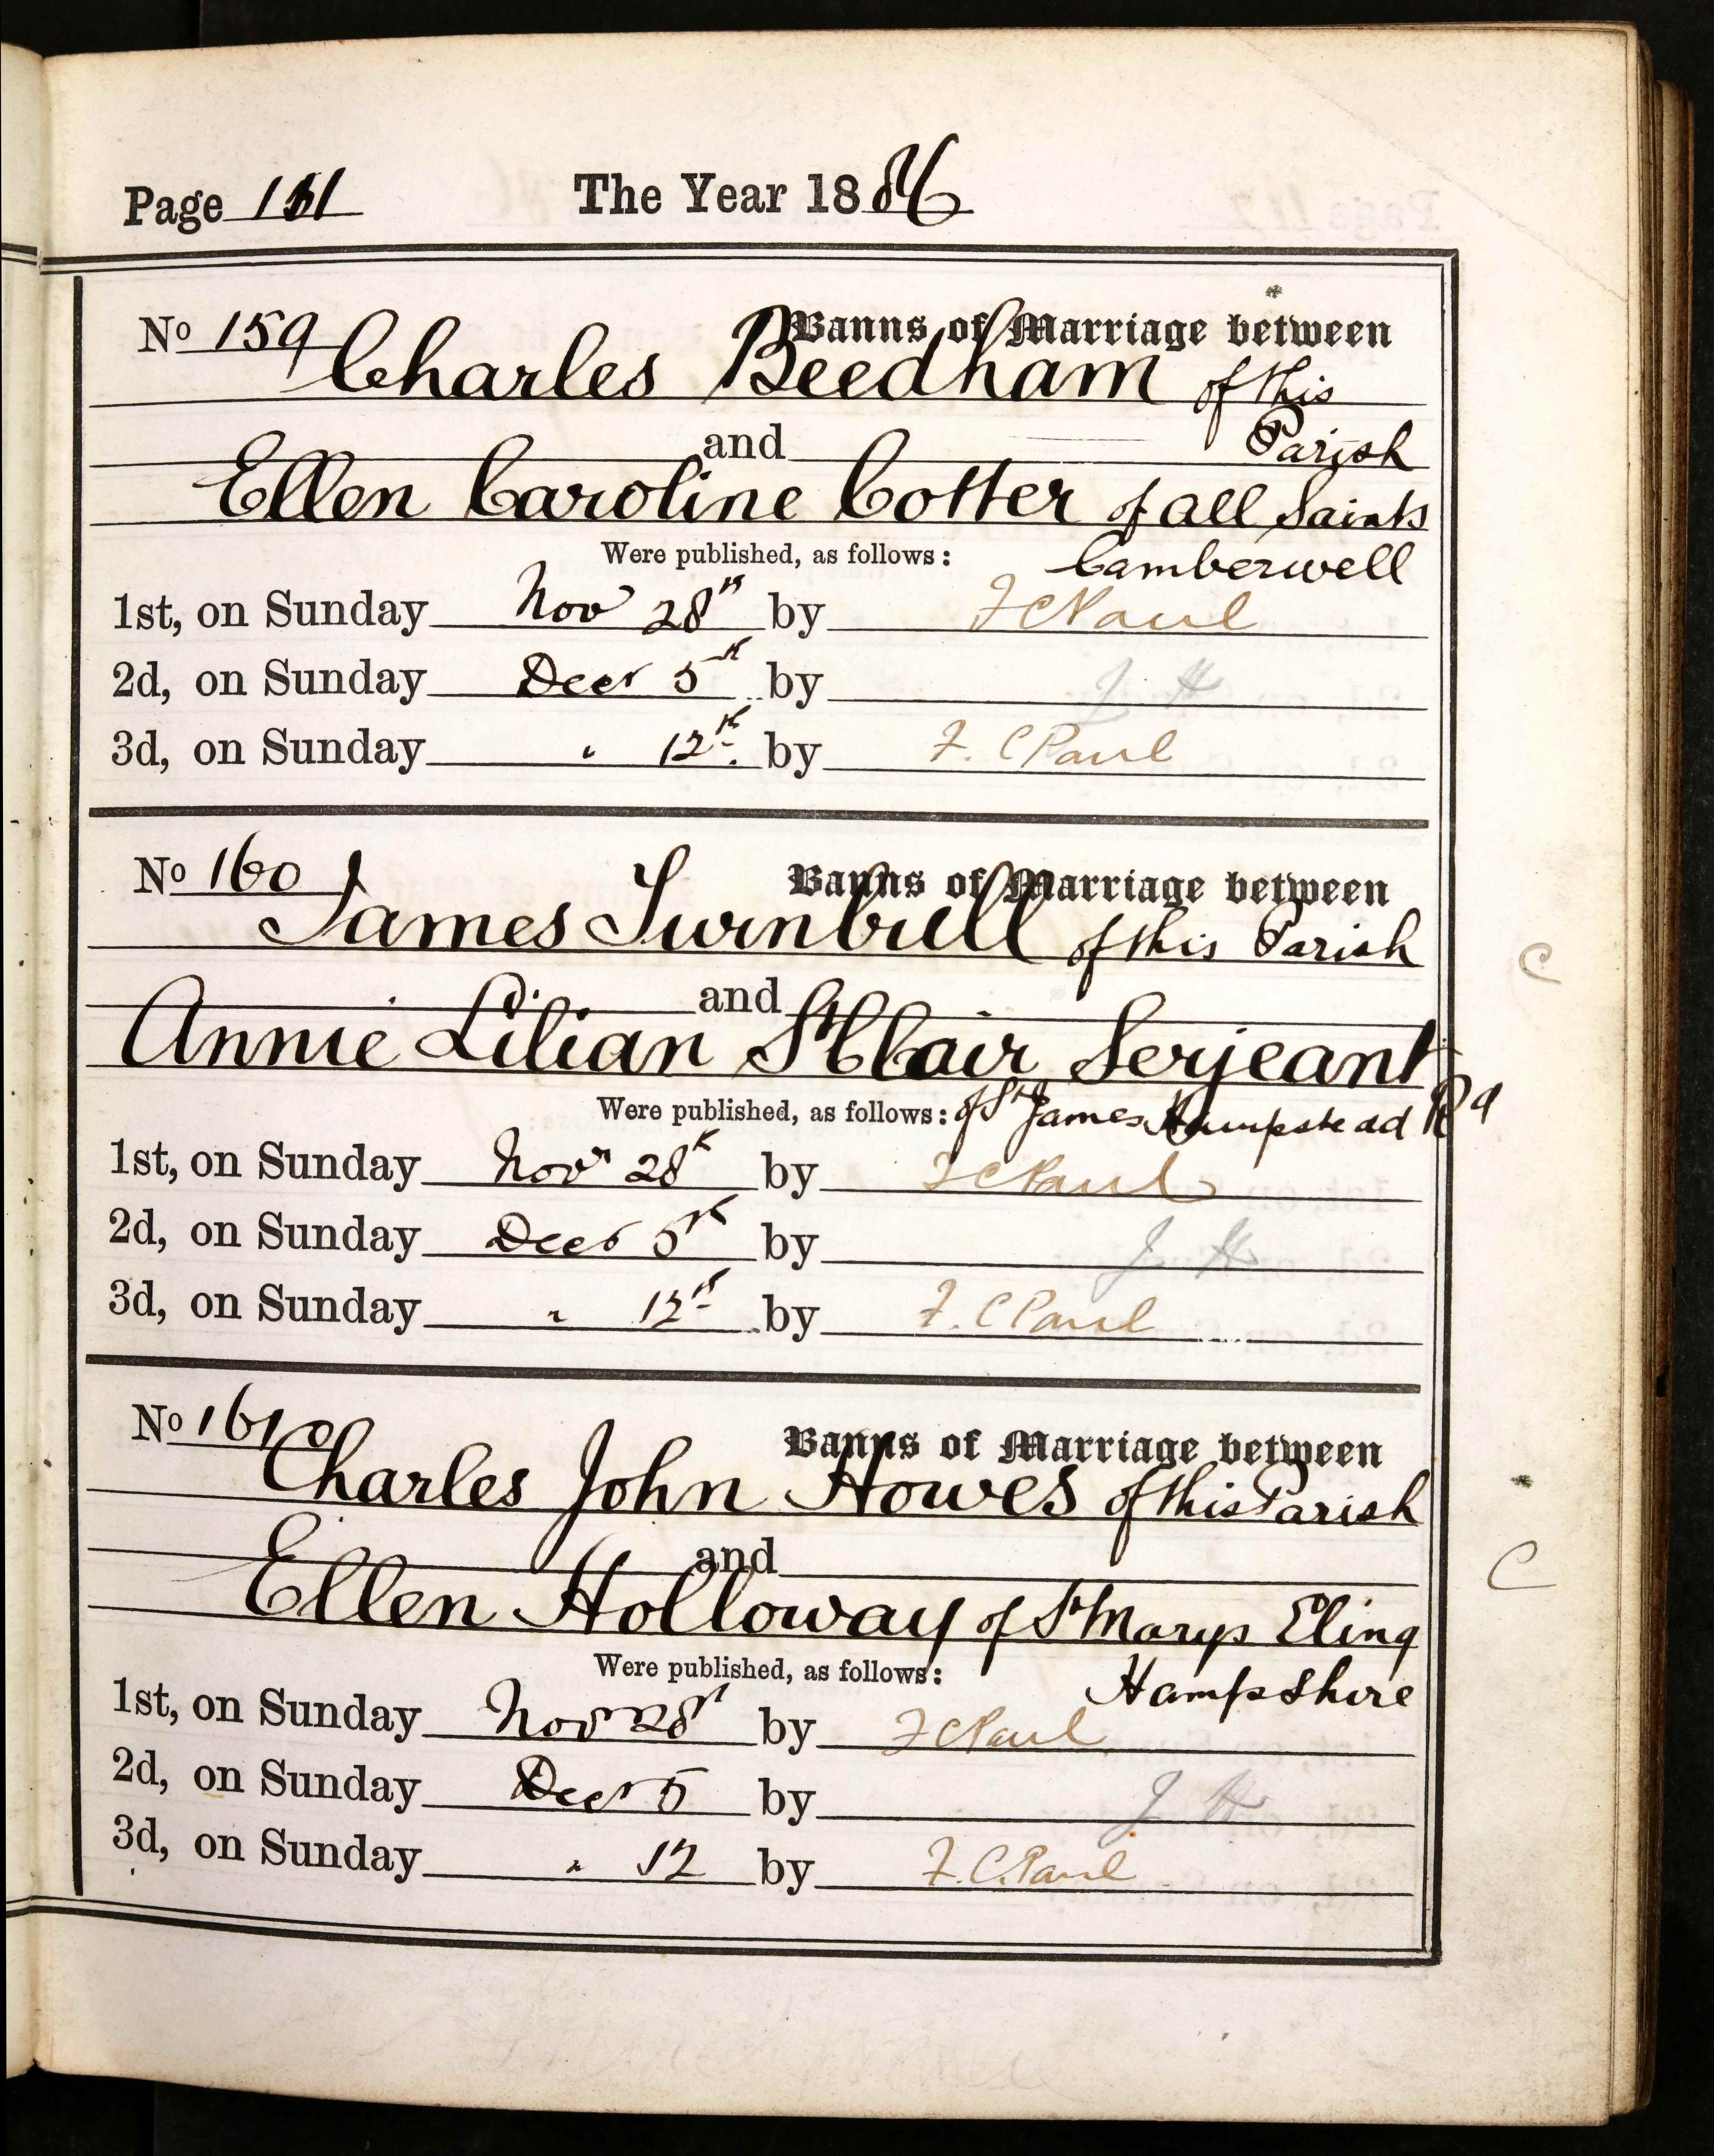 Page 111 The Year 1886
No 159 Banns of Marriage between
Charles Beedham of this
and Parish
Ellen Caroline Cotter of All Saints
Were published, as follows: Camberwell
1st, on Sunday Nov 28th by F C Paul
2d, on Sunday Decr 5th by J H
3d, on Sunday " 12th by F. C Paul
No 160 Banns of Marriage between
James Turnbull of this Parish
and
Annie Lilian St Clair Serjeant
Were published, as follows: of St James Hampstead Rd
1st, on Sunday Novr 28th by F C Paul
2d, on Sunday Decr 5th by J H
3d, on Sunday " 12th by F. C Paul
No 161 Banns of Marriage between
Charles John Howes of this Parish
and
Ellen Holloway of St Marys Eling
Were published, as follows: Hampshire
1st, on Sunday Novr 28th by F C Paul
2d, on Sunday Decr 5 by J H
3d, on Sunday " 12 by F. C. Paul
C
C